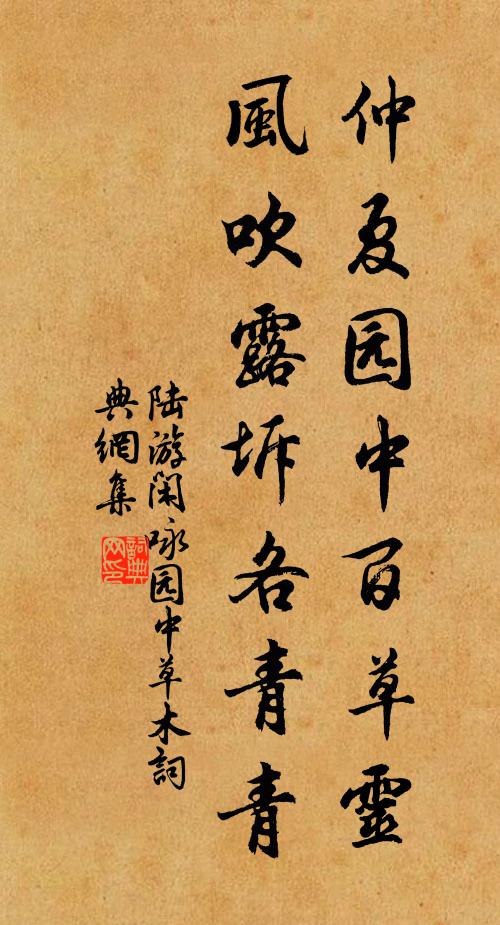 仲夏园中百草靈
風吹露坼各青青
陆游闲咏园中草木詞
典網集
詞典
网印